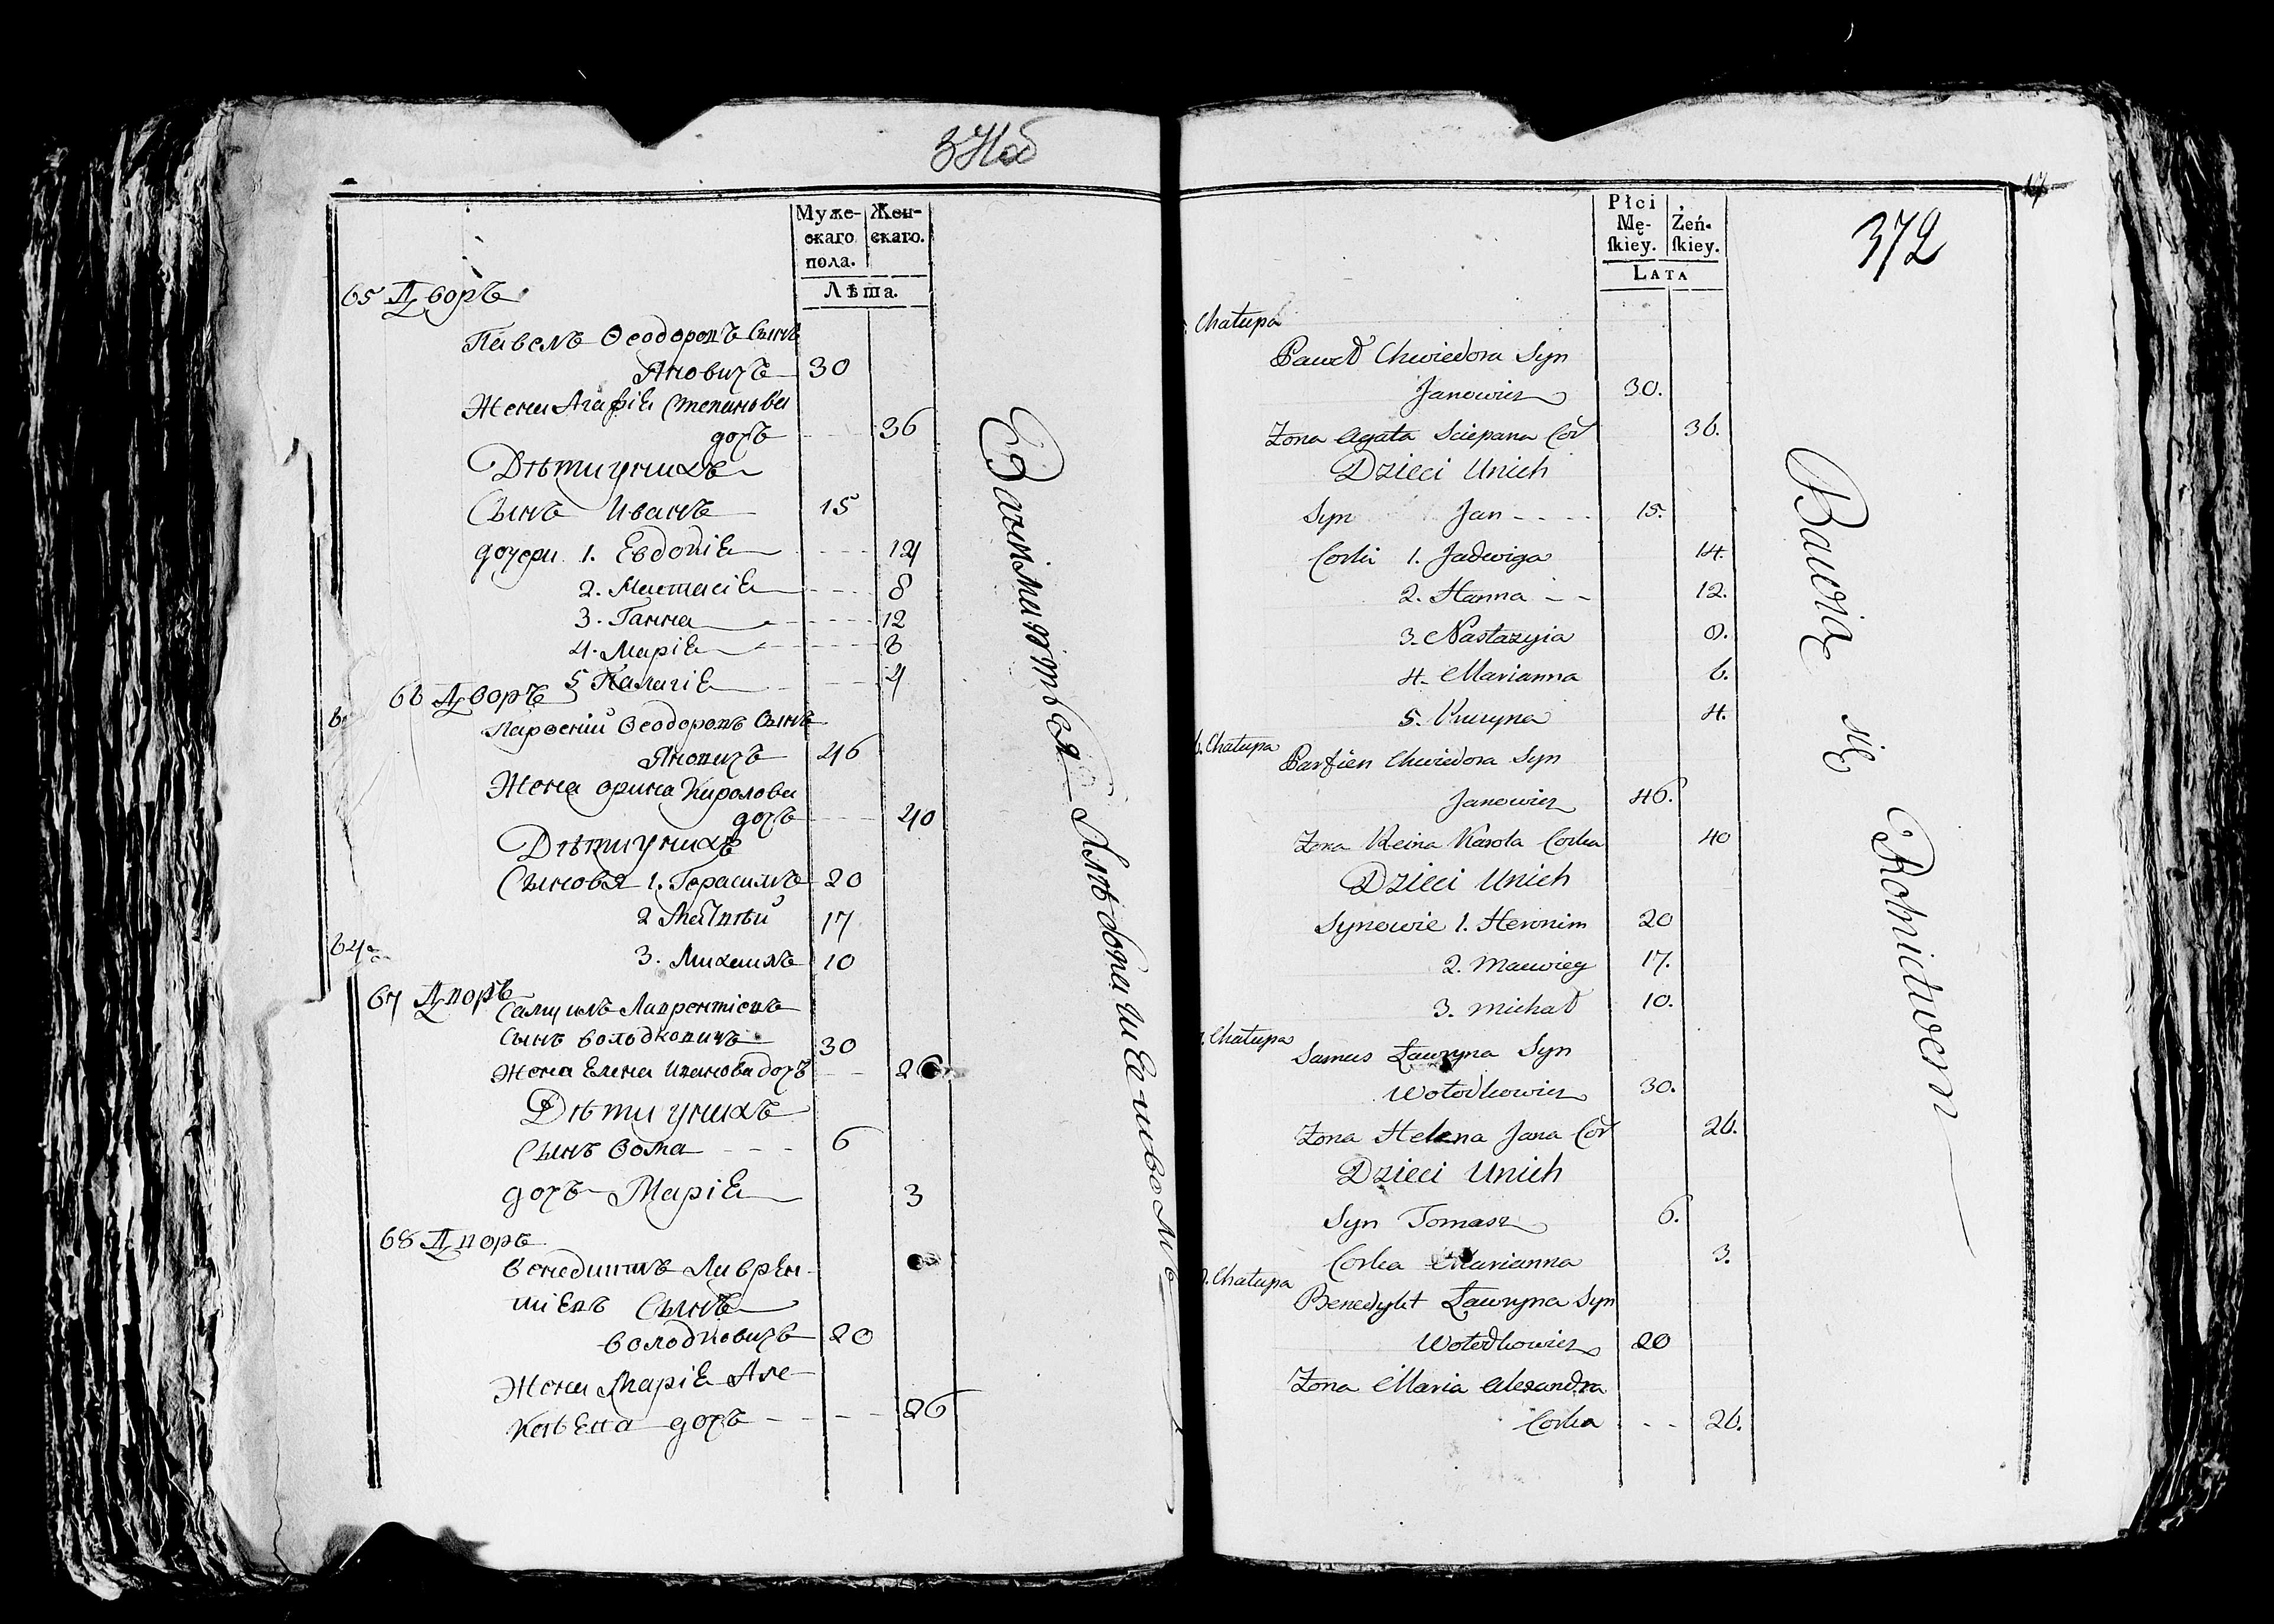 Муже-
скаго
пола.
Жен-
скаго.
Лѣта.
65 Дворъ
Павелъ Ѳеодоровъ Сынъ
Яновичъ 30
Жена Агафія Степанова
дочь 36
Дѣти у нихъ
Сынъ Иванъ 15
дочери 1. Евдокія 14
2. Настасія 8
3. Ганна 12
4. Марія 8
5 Палагія 4
66 Дворъ
Парѳеній Ѳеодоровъ Сынъ
Яновичъ 46
Жена орина Киролова
дочь 40
Дѣти у нихъ
Сыновя 1. Герасимъ 20
2 Матвѣй 17
3. Михаилъ 10
67 Дворъ
Самуилъ Лаврентіевъ
Сынъ володковичъ 30
жена Елена Иванова дочь 26
Дѣти у нихъ
Сынъ Ѳома 6
дочь Марія 3
68 Дворъ
венедиктъ Лаврен-
тіевъ Сынъ
володковичъ 20
Жена Марія Але-
ксѣева дочь 26
Занімаютъся Хлѣбопашествомъ
372
Płci
Mę-
skiey.
Żeń-
skiey.
LATA
Chałupa
Paweł Chwiedora Syn
Janowicz 30.
Zona Agata Sciepana Cór
36.
Dzieci Unich
Syn Jan 15.
Corki 1. Jadwiga 14.
2. Hanna 12.
3. Nastazyia 8.
4. Marianna 6.
5. 4.
6. Chałupa
Parfien Chwiedora Syn
Janowicz 46.
Zona Reina Karola Corka 40
Dzieci Unich
Synowie 1. Heronim 20
2. Macwiey 17.
3. Michał 10.
7. Chałupa
Samus Ławryna Syn
Wołodkowicz 30.
Zona Helena Jana Cor 26.
Dzieci Unich
Syn Tomasz 6.
Corka Marianna 3.
Chałupa
Benedykt Ławryna Syn
Wołodkowicz 20
Zona Maria Alexandra
Corka 26.
Bawią się Rolnictwem